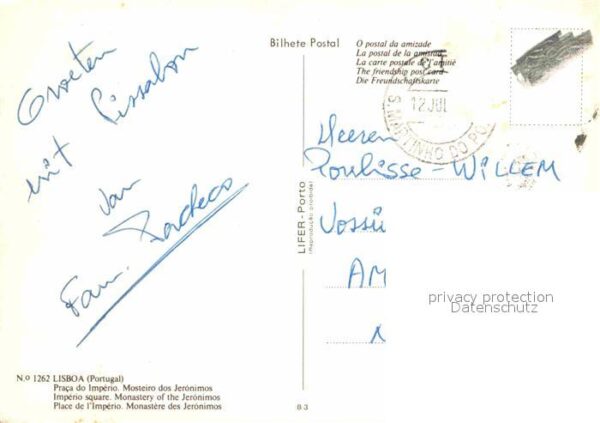 Groeten
uit Lissabon
van
Fam. Pacheco
Bilhete Postal
O postal da amizade
La postal de la amistad
La carte postale de l'amitié
The friendship post card
Die Freundschaftskarte
S. MARTINHO DO PO
12 JUL
Heeren
Poulisse - WILLEM
Vossi
AM
LIFER - Porto
(Reprodução proibida)
privacy protection
Datenschutz
N.º 1262 LISBOA (Portugal)
Praça do Império. Mosteiro dos Jerónimos
Império square. Monastery of the Jerónimos
Place de l'Império. Monastère des Jerónimos
8-3